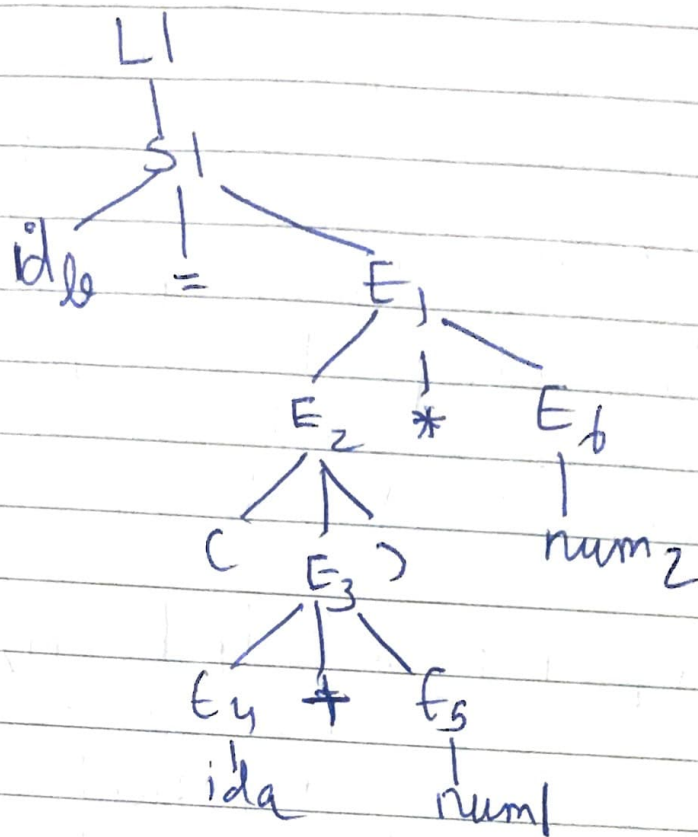 L1
S1
id_b = E_1
E_2 * E_6
( E_3 ) num_2
E_4 + E_5
id_a num1